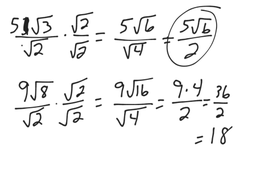 5√3/√2 · √2/√2 = 5√6/√4 = 5√6/2
9√8/√2 · √2/√2 = 9√16/√4 = 9·4/2 = 36/2
= 18